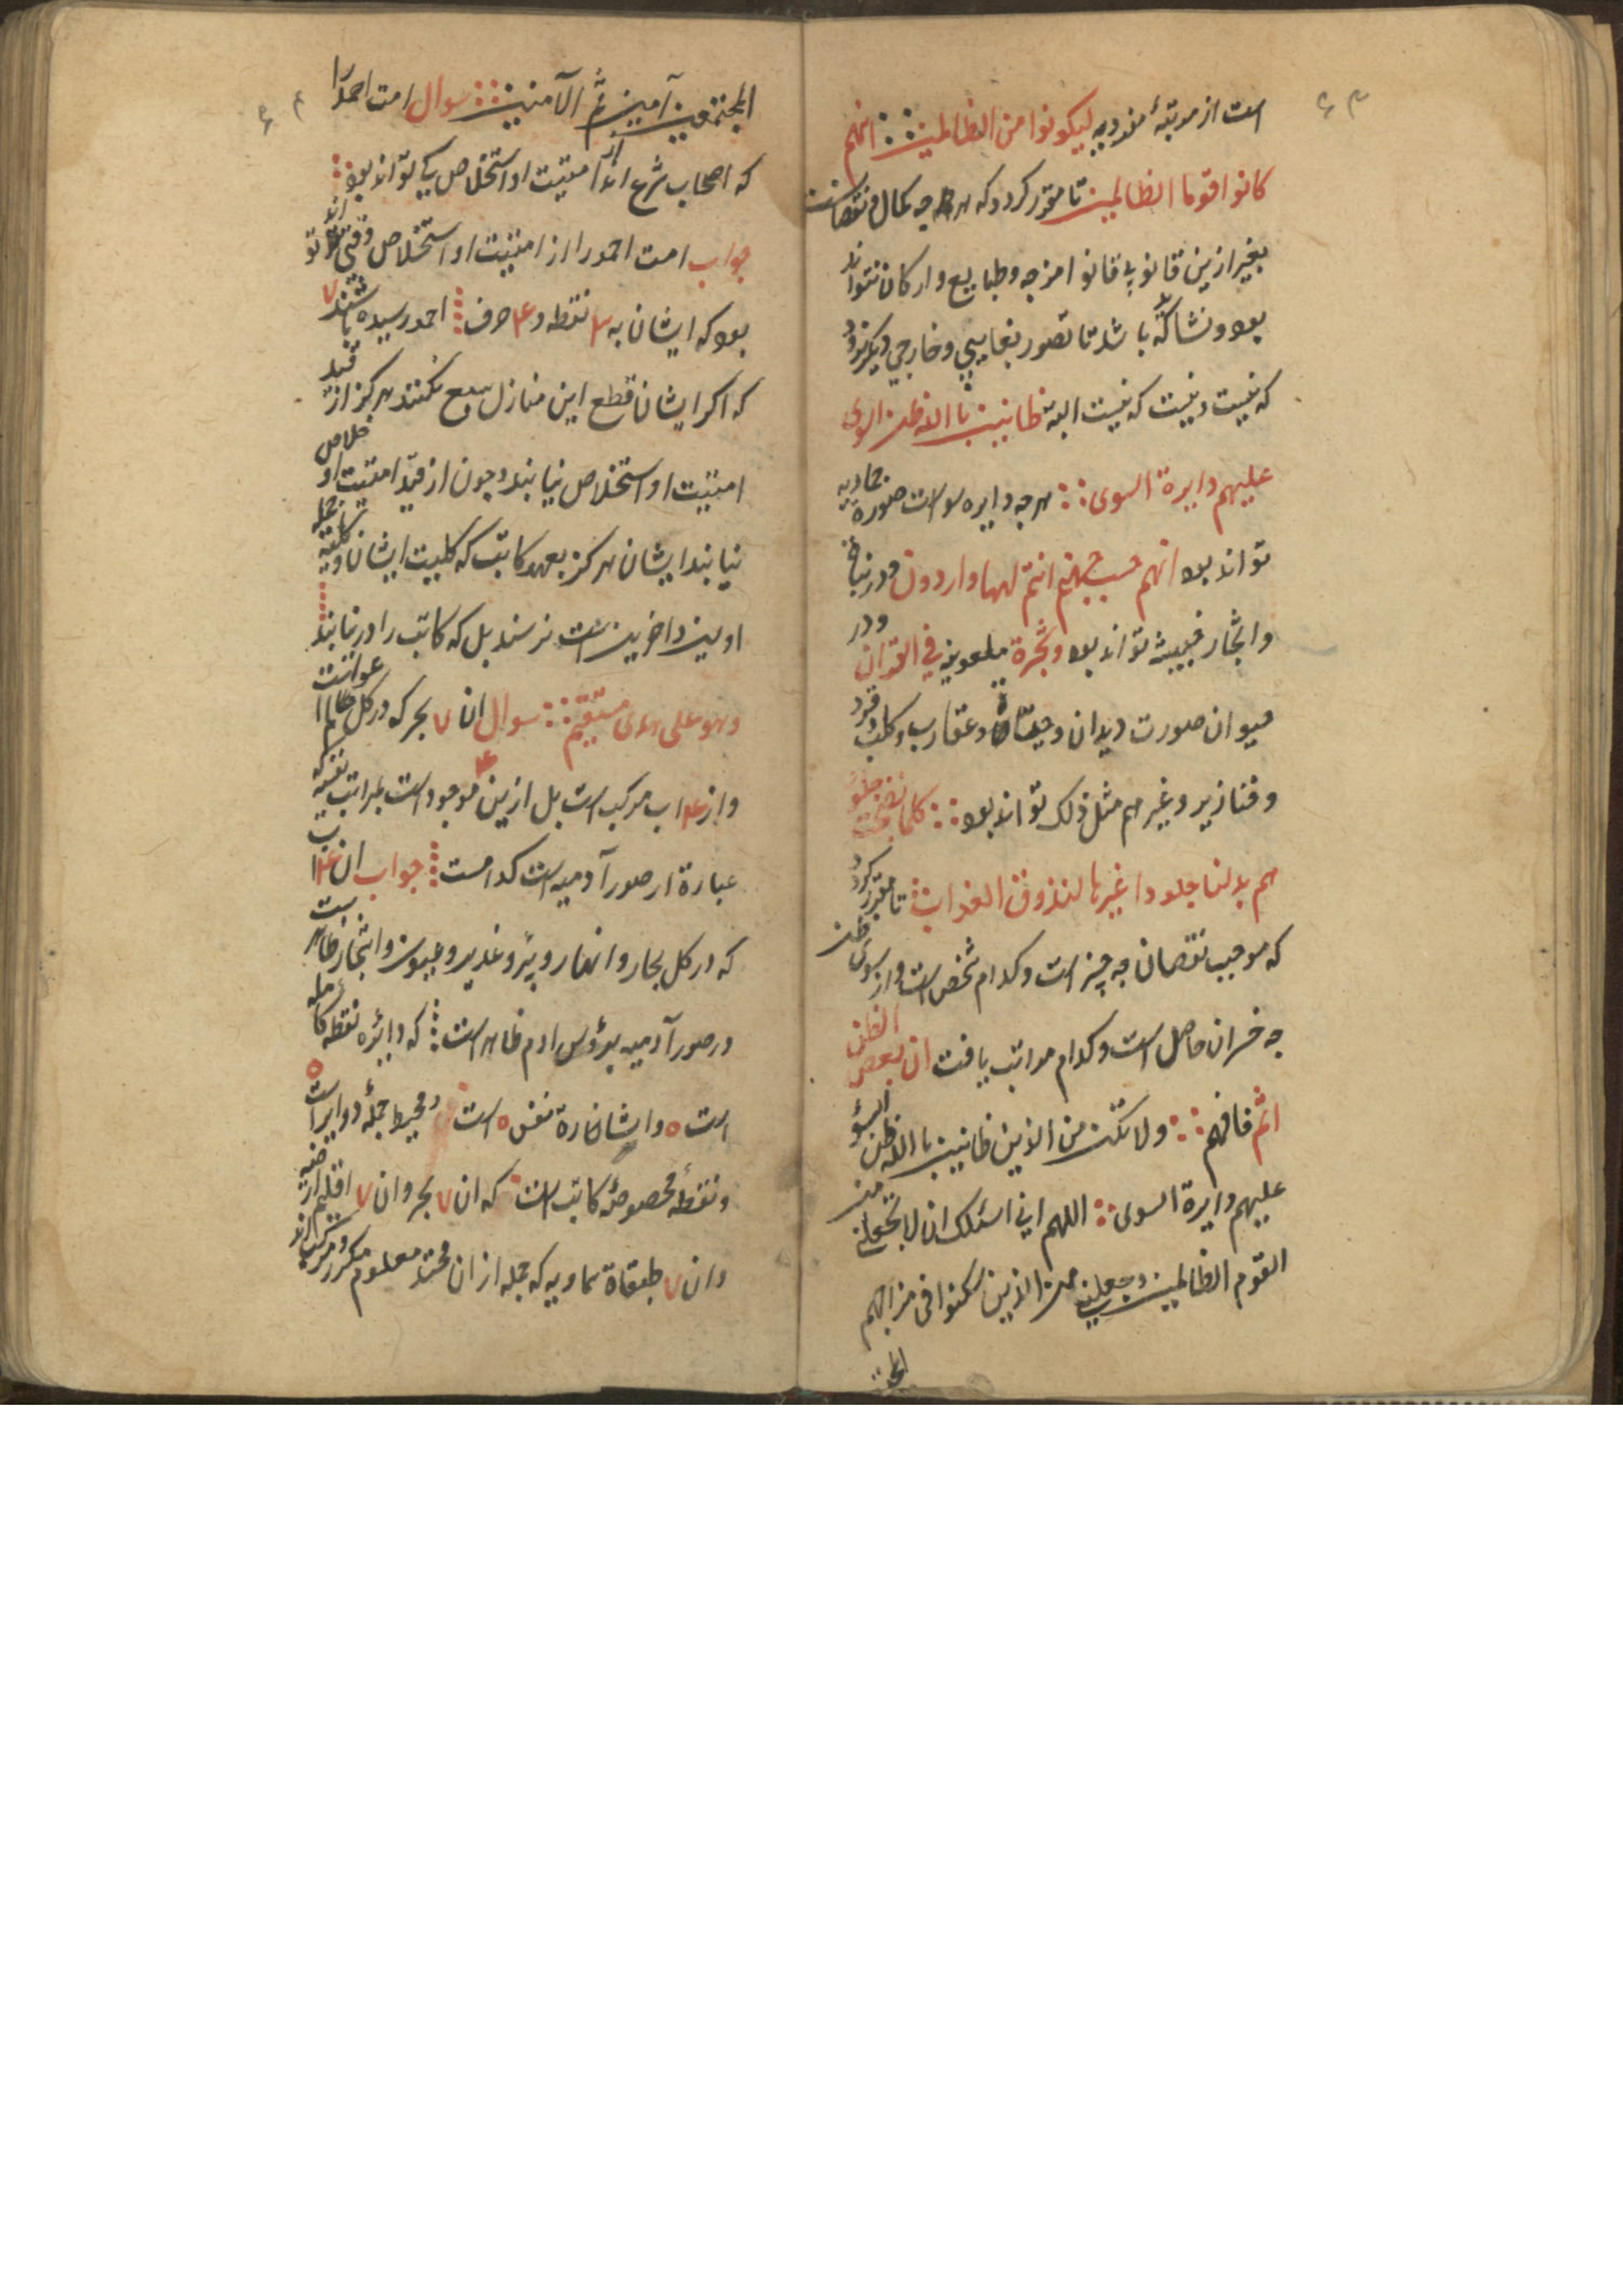 ۶۳
است از مرتبهٔ مزدویه لیکونوا من الظالمین انهم
کانوا قوما الظالمین تا مقرر کردد که هر چه کمال و نقصانست
بغیر ازین قانون قانوا مزجه و طبایع و ارکان نتواند
بود و نشاکه باشد تا تصور بغایبی و خارجی دیکر نرود
که نیست و نیست که نیست البته ظانین باالله ظن السوی
علیهم دایرة السوی هر چه دایره سو است صوره جمادیه
تواند بود انهم حسب جهنم انتم لهما واردون و در نبات
و اشجار خبیثه تواند بود و شجرة ملعوینه فی القران و در
حیوان صورت دیدان و حیات و عقارب و کلب و قرد
و خنازیر و غیرهم مثل ذلک تواند بود کلما نضجت جلو
هم بدلنا جلودا غیرها لنذوق العذاب تا مقرر کردد
که موجب نقصان چه چیز است و کدام شخص است و از سوی ظن
چه خسران حاصل است و کدام مراتب یافت ان بعض الظن
اثم فافهم ولا تکن من الذین ظانین باالله ظن السؤ
علیهم دایرة السوی اللهم انی اسئلک ان لا تجعلنی من
القوم الظالمین وجعلنی من الذین سکنوا فی مزاجهم
۶۴
المجتمعین آمین ثم الآمنین سوال امت احمد را
که اصحاب شرع اند از امنیت او استخلاص کی تواند بود
جواب امت احمد را از امنیت او استخلاص وقتی تواند
بود که ایشان به ۳ نقطه و ۴ حرف احمد رسیده باشند
که اکر ایشان قطع این منازل سبع نکنند هرکز از قید
امنیت او استخلاص نیابند و چون از قید امنیت او خلاص
نیابند ایشان هرکز بعهد کاتب که کلیت ایشان و جمله
اولین و اخرین است نرسند بل که کاتب را در نیابند
وهو علی هدی مستقیم سوال ان ۷ بحر که در کل عوالم
و از ۴ اب مرکب است بل ازین ۴ موجود است بمراتب نفسیه که
عبارة از صور آدمیه است کدامست جواب ان ۴ اب
که در کل بحار و انهار و بئر و غدیر و عیون و اشجار ظاهر
در صور آدمیه برؤس ادم ظاهر است که دایره نقطه کامله
است ٥ و اشاره نفس ٥ است و محیط جملهٔ دوایر است
و نقطهٔ مخصوصهٔ کاتب است که ان ۷ بحر و ان ۷ اقلیم ارضیه
و ان ۷ طبقاة سماویه که جمله از ان معلوم مکرر و مرکب اند